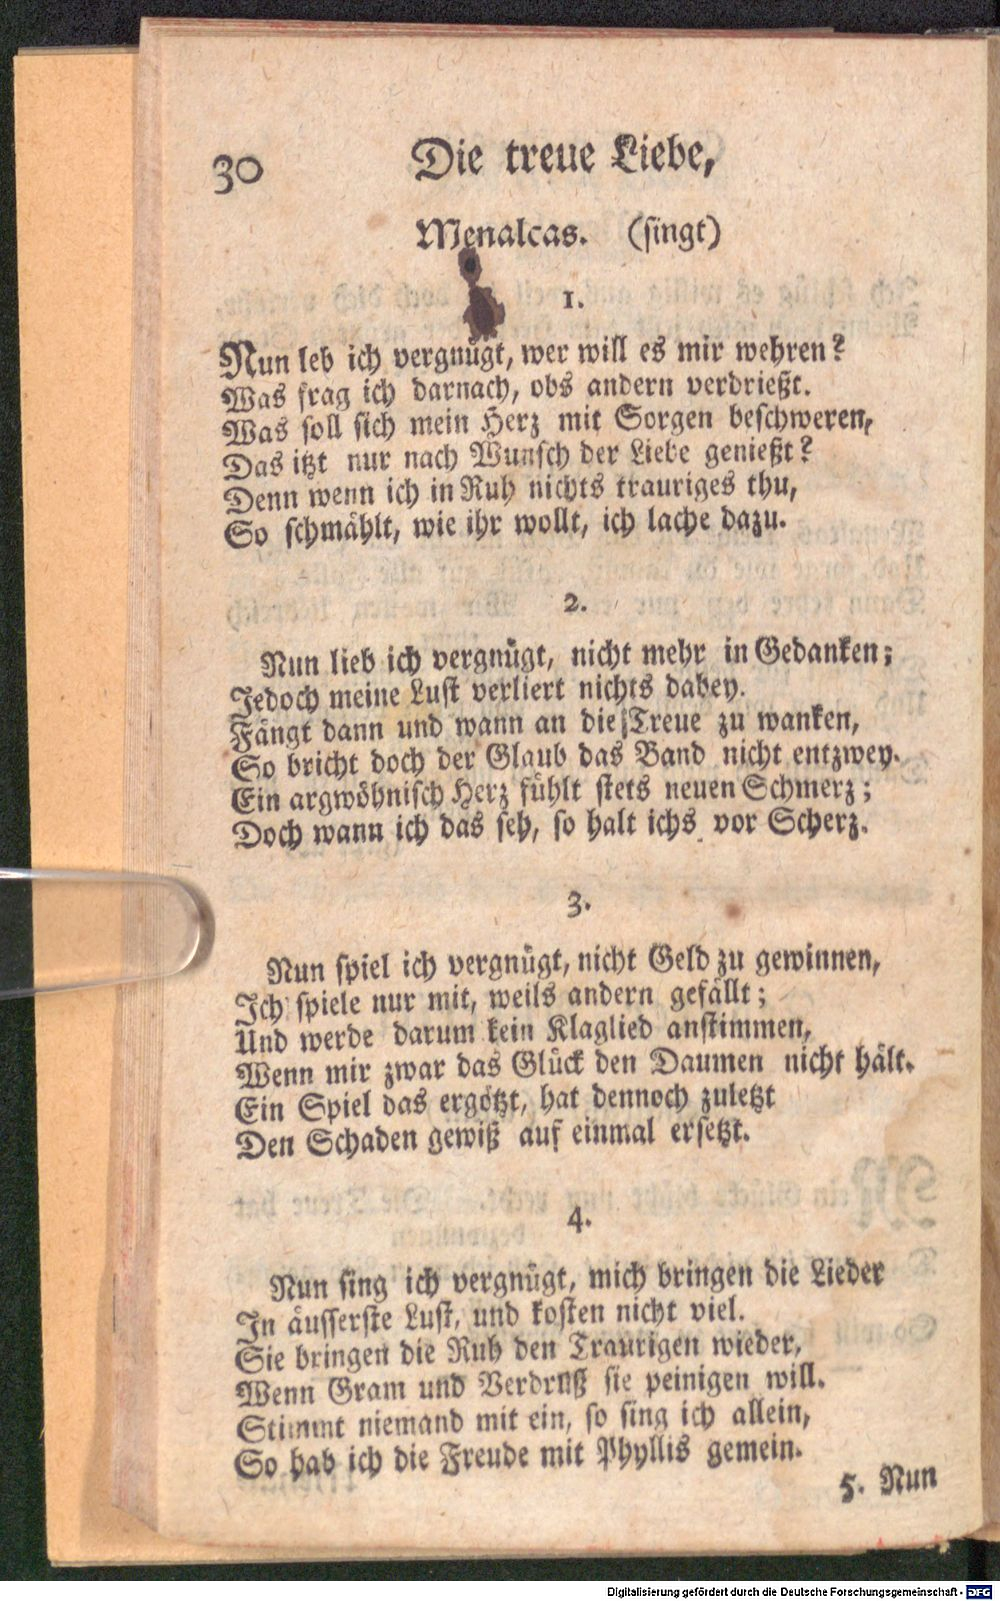 30
Die treue Liebe,
Menalcas. (singt)
1.
Nun leb ich vergnügt, wer will es mir wehren?
Was frag ich darnach, obs andern verdrießt.
Was soll sich mein Herz mit Sorgen beschweren,
Das itzt nur nach Wunsch der Liebe genießt?
Denn wenn ich in Ruh nichts trauriges thu,
So schmählt, wie ihr wollt, ich lache dazu.
2.
Nun lieb ich vergnügt, nicht mehr in Gedanken;
Jedoch meine Lust verliert nichts dabey.
Fängt dann und wann an die Treue zu wanken,
So bricht doch der Glaub das Band nicht entzwey.
Ein argwöhnisch Herz fühlt stets neuen Schmerz;
Doch wann ich das seh, so halt ichs vor Scherz.
3.
Nun spiel ich vergnügt, nicht Geld zu gewinnen,
Ich spiele nur mit, weils andern gefällt;
Und werde darum kein Klaglied anstimmen,
Wenn mir zwar das Glück den Daumen nicht hält.
Ein Spiel das ergötzt, hat dennoch zuletzt
Den Schaden gewiß auf einmal ersetzt.
4.
Nun sing ich vergnügt, mich bringen die Lieder
In äusserste Lust, und kosten nicht viel.
Sie bringen die Ruh den Traurigen wieder,
Wenn Gram und Verdruß sie peinigen will.
Stimmt niemand mit ein, so sing ich allein,
So hab ich die Freude mit Phyllis gemein.
5. Nun
Digitalisierung gefördert durch die Deutsche Forschungsgemeinschaft - DFG